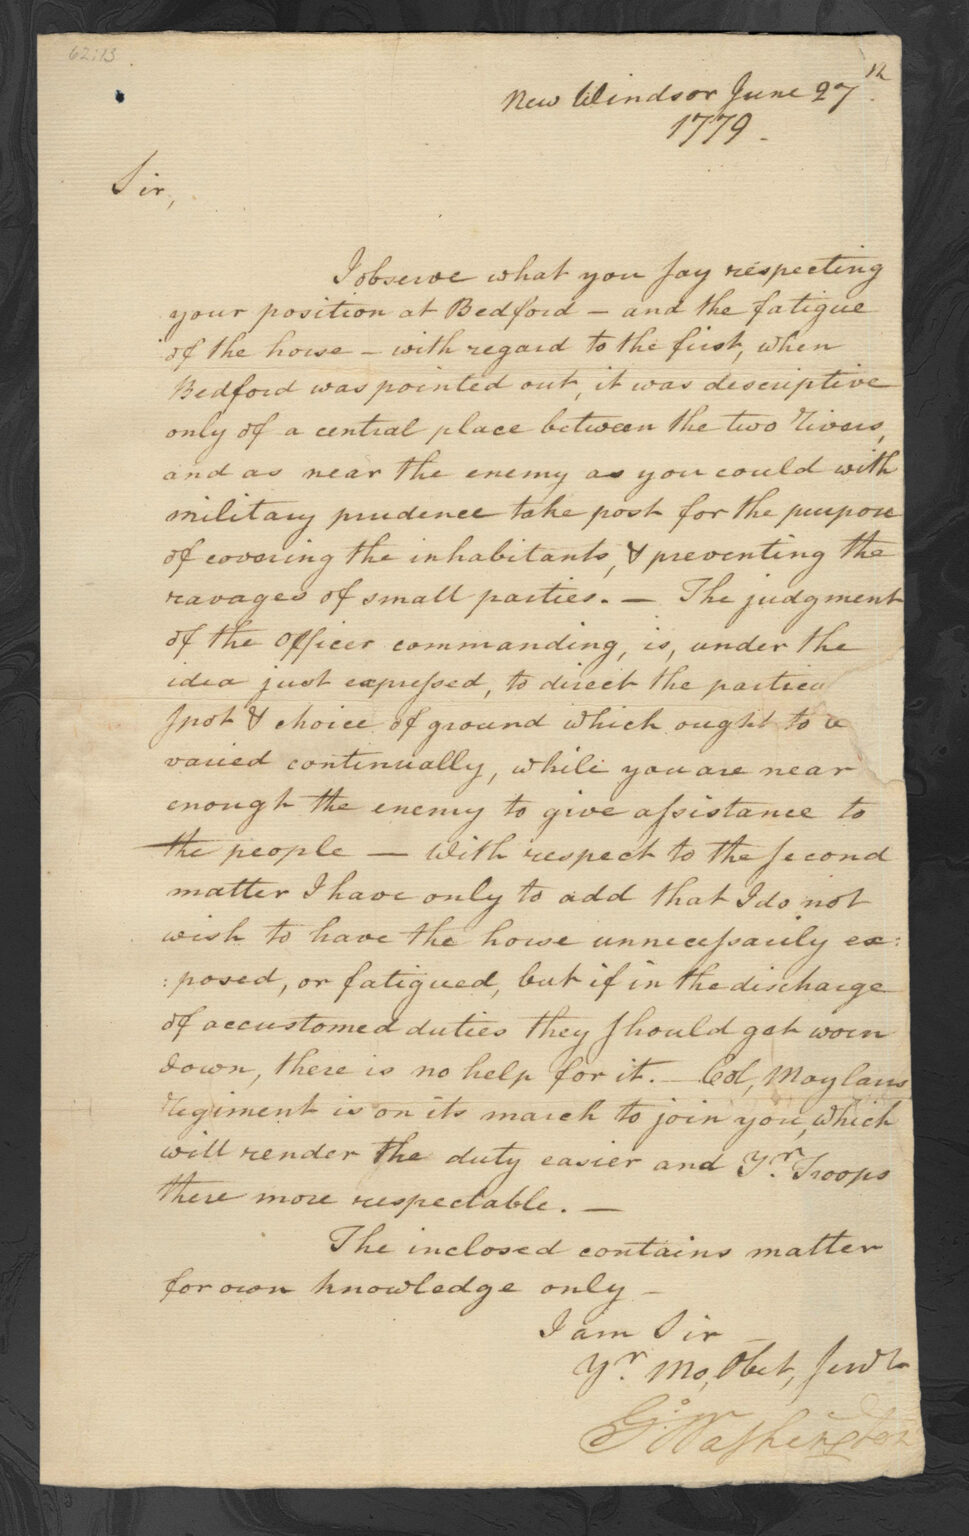 62:13
12
New Windsor June 27
1779.
Sir,
I observe what you say respecting
your position at Bedford – and the fatigue
of the horse – with regard to the first, when
Bedford was pointed out, it was descriptive
only of a central place between the two rivers,
and as near the enemy as you could with
military prudence take post for the purpose
of covering the inhabitants, & preventing the
ravages of small parties. – The judgment
of the Officer commanding, is, under the
idea just expressed, to direct the particu
spot & choice of ground which ought to
varied continually, while you are near
enough the enemy to give assistance to
the people – With respect to the second
matter I have only to add that I do not
wish to have the horse unnecessarily ex:
:posed, or fatigued, but if in the discharge
of accustomed duties they should get worn
down, there is no help for it. – Col, Moylans
regiment is on its march to join you, which
will render the duty easier and Yr. Troops
there more respectable. –
The inclosed contains matter
for own knowledge only –
I am Sir
Yr. Mo, Obet, Servt
Go: Washington